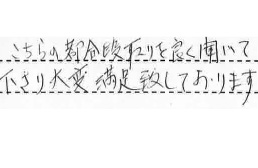 こちらの都合段取りを良く聞いて
下さり大変満足致しております